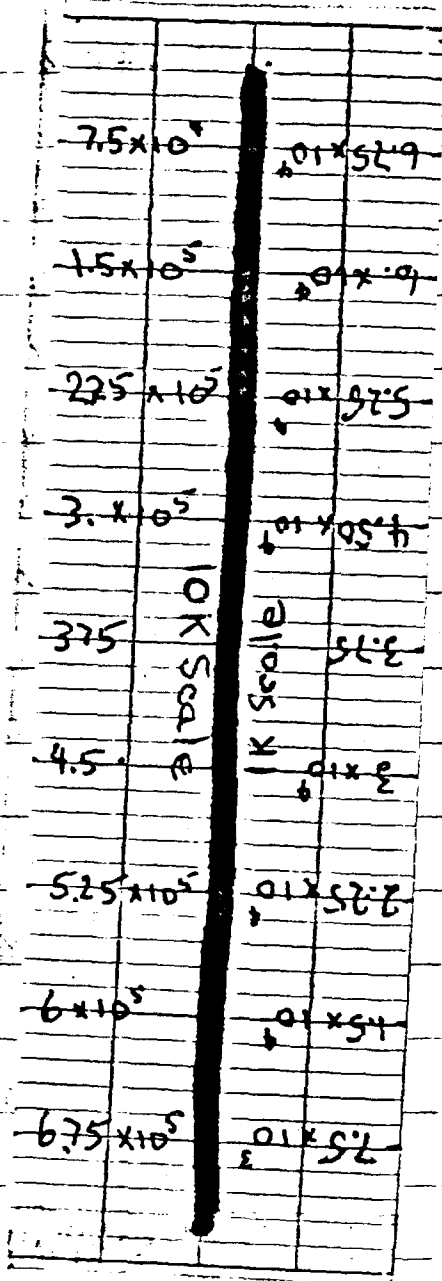 7.5 x 10⁴
1.5 x 10⁵
2.25 x 10⁵
3. x 10⁵
375
4.5
5.25 x 10⁵
6 x 10⁵
6.75 x 10⁵
10K Scale
1K Scale
7.5 x 10³
1.5 x 10⁴
2.25 x 10⁴
3 x 10⁴
3.75
4.50 x 10⁴
5.25 x 10⁴
6. x 10⁴
6.75 x 10⁴